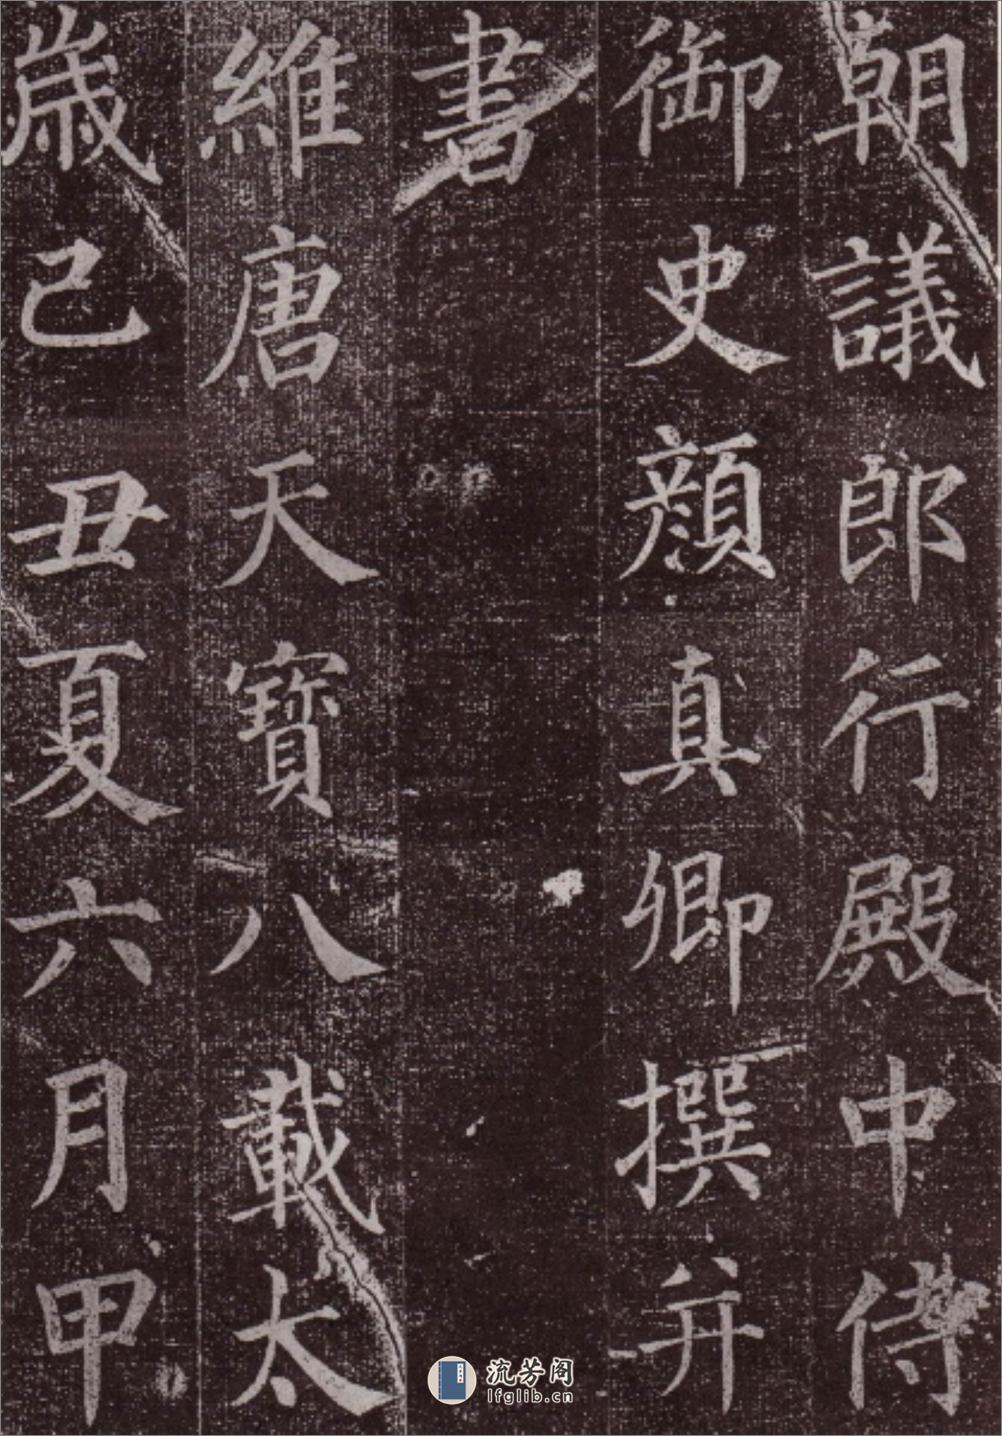 朝議郎行殿中侍
御史顏真卿撰并
書
維唐天寶八載太
歲己丑夏六月甲
流芳阁
lfglib.cn